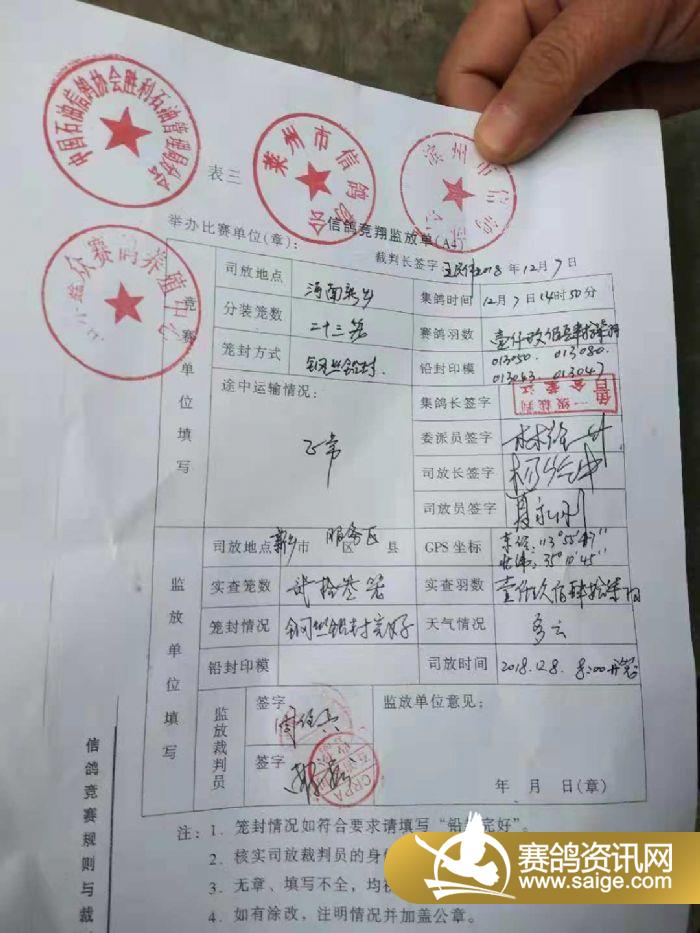 中国石油信鸽协会胜利石油管理局分会
莱州市信鸽协会
滨州市信鸽协会
众赛鸽养殖中心
表三
信鸽竞翔监放单(A4)
举办比赛单位(章):
裁判长签字 2018年12月7日
竞赛单位填写
司放地点 河南新乡 集鸽时间 12月7日14时50分
分装笼数 二十三笼 赛鸽羽数 壹仟玖佰肆拾柒羽
笼封方式 钢丝铅封. 铅封印模 013050. 013080. 013063 013047
途中运输情况: 正常
集鸽长签字 一级裁判
委派员签字
司放长签字
司放员签字
监放单位填写
司放地点 新乡市 服务区 县 GPS 坐标 东经:113°55′49″ 北纬:35°10′45″
实查笼数 贰拾叁笼 实查羽数 壹仟玖佰肆拾柒羽
笼封情况 钢丝铅封完好 天气情况 多云
铅封印模 司放时间 2018.12.8. 8:00开笼
监放裁判员
签字
签字
CRPA
监放单位意见:
年 月 日(章)
注: 1. 笼封情况如符合要求请填写“铅封完好”。
2. 核实司放裁判员的身
3. 无章、填写不全,均
4. 如有涂改,注明情况并加盖公章。
信鸽竞赛规则与裁
赛鸽资讯网
www.saige.com